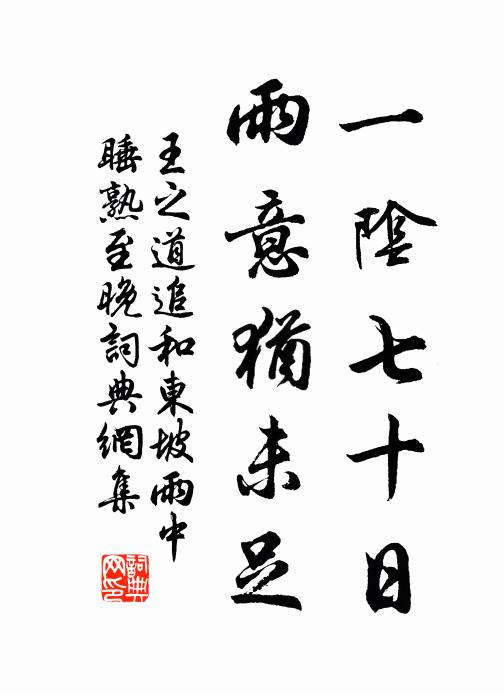 一陰七十日
雨意猶未足
王之道追和東坡雨中
睡熟至晚詞典網集
詞典网印